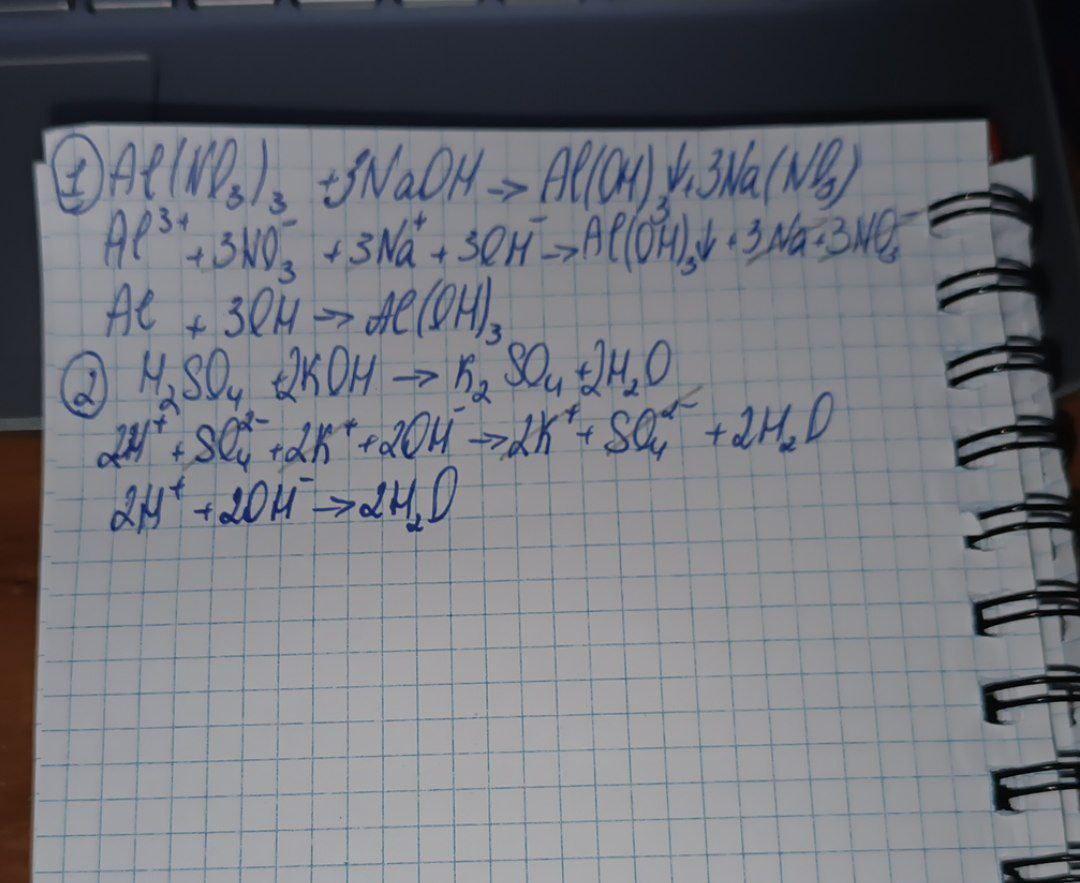 ① Al(NO₃)₃ +3NaOH → Al(OH)₃↓+3Na(NO₃)
Al³⁺ +3NO₃⁻ +3Na⁺ +3OH⁻ →Al(OH)₃↓ +3Na⁻+3NO₃⁻
Al + 3OH → Al(OH)₃
② H₂SO₄ +2KOH → K₂SO₄ +2H₂O
2H⁺ + SO₄²⁻ +2K⁺ +2OH⁻ →2K⁺ + SO₄²⁻ +2H₂O
2H⁺ +2OH⁻ →2H₂O